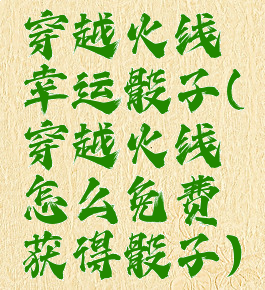 穿越火线
幸运骰子(
穿越火线
怎么免费
获得骰子)